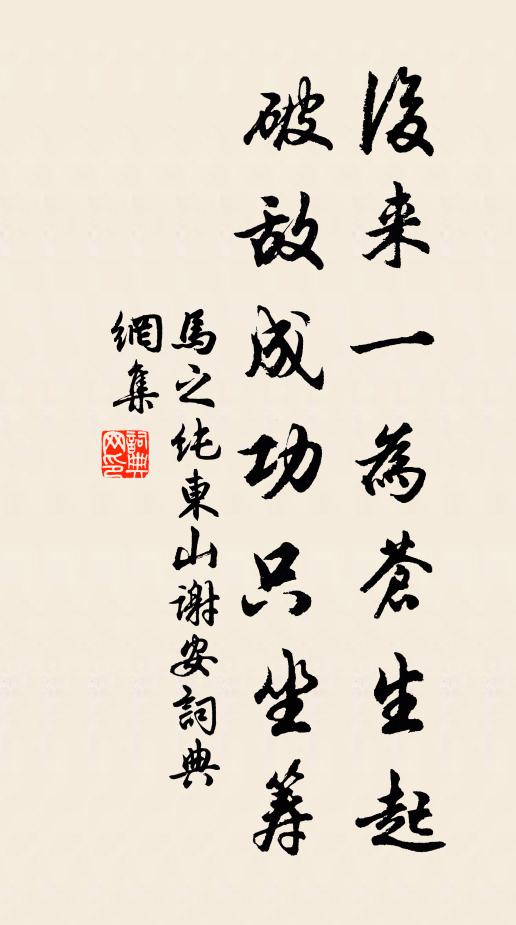 後来一為蒼生起
破敵成功只坐筹
馬之純東山謝安詞典
網集
詞典
网印